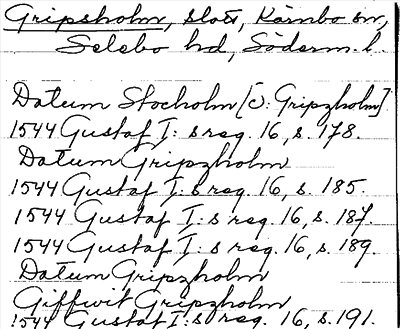 Gripsholm, slott, Kärnbo sn,
Selebo hd, Söderm. l.
Datum Stocholm [o: Gripzholm]
1544 Gustaf I:s reg. 16, s. 178.
Datum Gripzholm
1544 Gustaf I:s reg. 16, s. 185.
1544 Gustaf I:s reg. 16, s. 187.
1544 Gustaf I:s reg. 16, s. 189.
Datum Gripzholm
Giffwit Gripzholm
1544 Gustaf I:s reg. 16, s. 191.